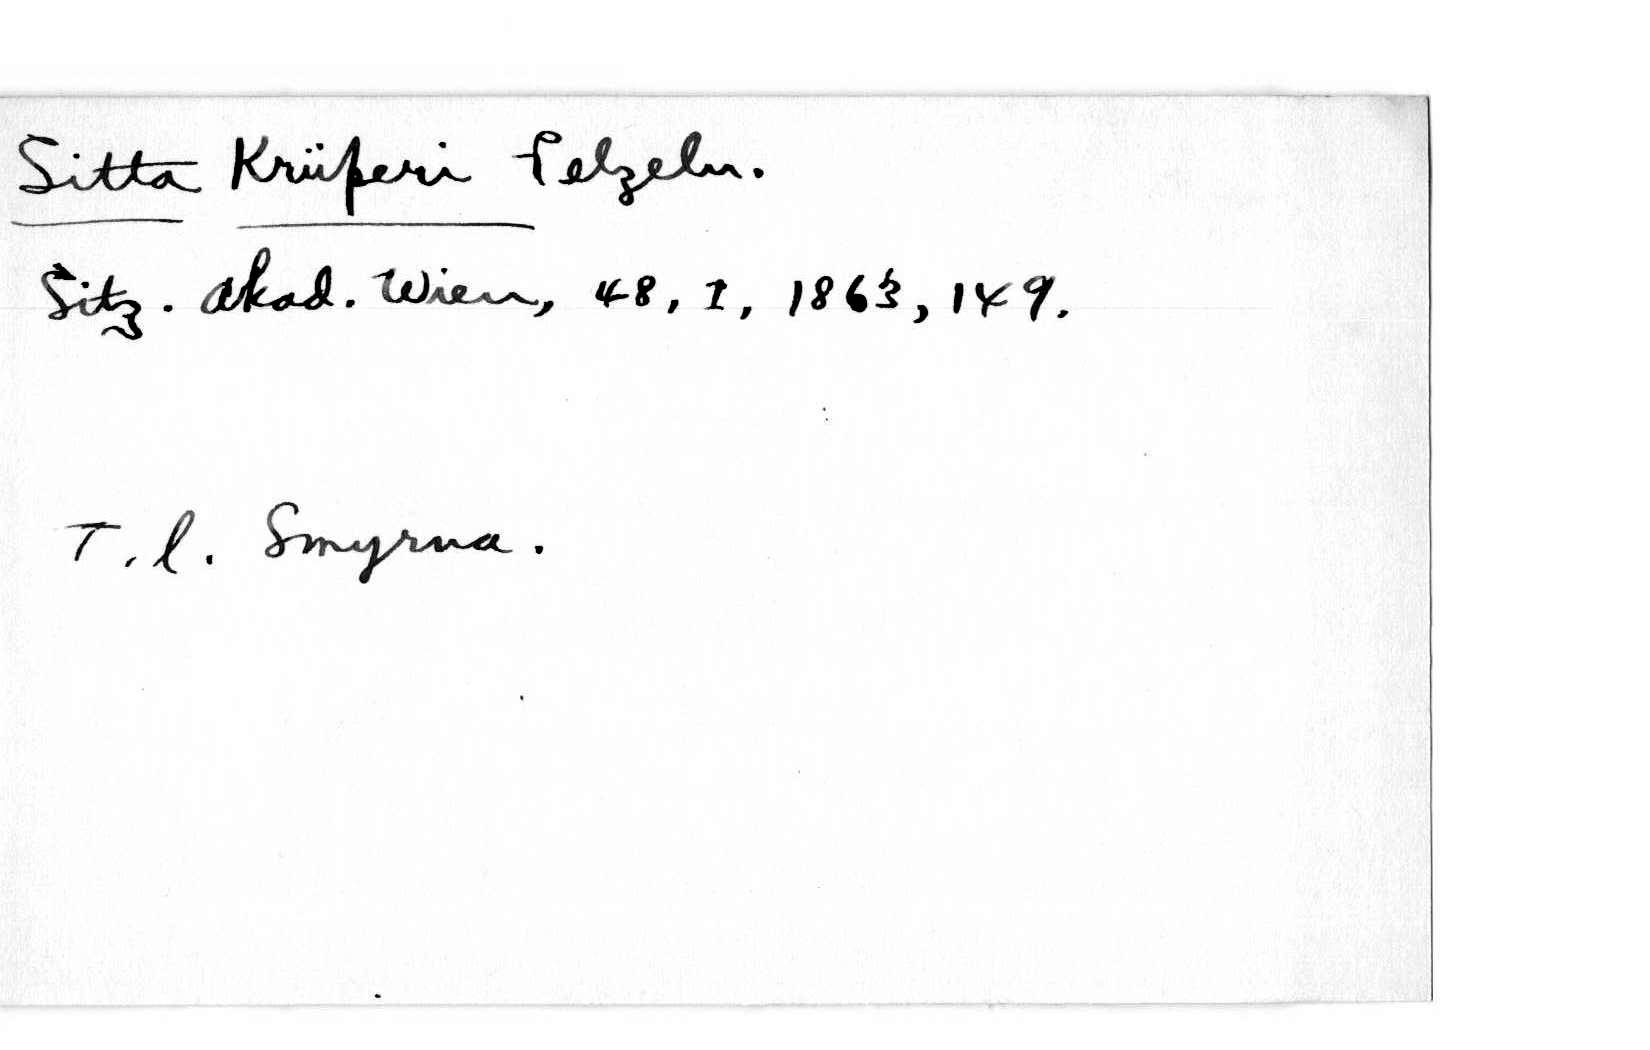 Sitta Krüperi Pelzeln.
Sitz. Akad. Wien, 48, I, 1863, 149.
T. l. Smyrna.